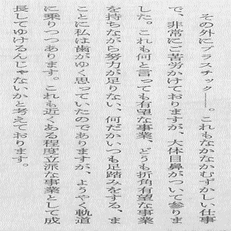 その外にプラスチック――。これもなかなかむずかしい仕事
で、非常にご苦労かけておりますが、大体目鼻がついて参りま
した。これも何と言っても有望な事業、どうも折角有望な事業
を持ちながら努力が足りない、何だかいつも足踏みをする、ま
ことに私は歯がゆく思っていたのでありますが、ようやく軌道
に乗りつつあります。これも近くある程度立派な事業として成
長してゆけるんじゃないかと考えております。